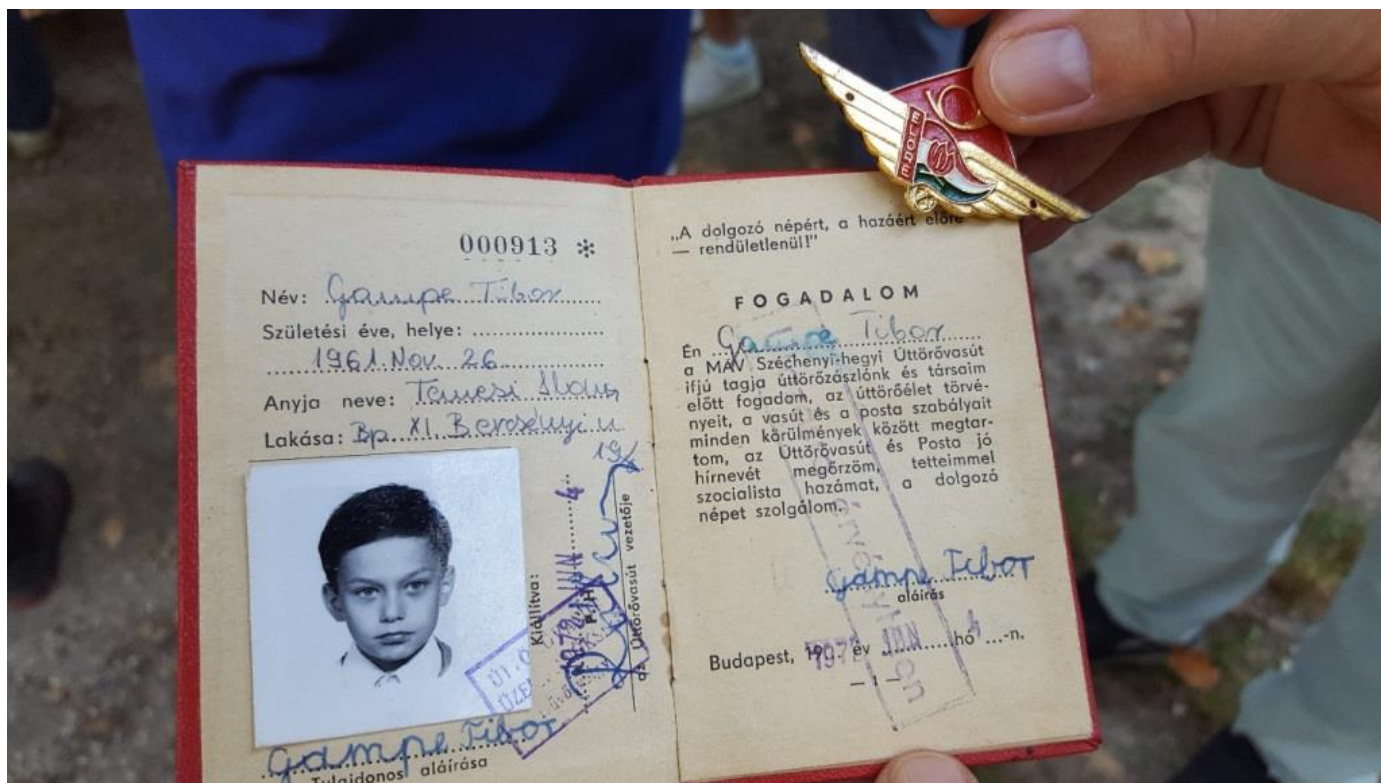 000913 *
Név: Gampe Tibor
Születési éve, helye:
1961. Nov. 26
Anyja neve: Temesi
Lakása: Bp. XI. Bercsényi u.
19
Kiállítva:
1972 JUN 4
az Úttörővasút vezetője
Gampe Tibor
Tulajdonos aláírása
ELŐRE
„A dolgozó népért, a hazáért előre
— rendületlenül!"
FOGADALOM
Én Gampe Tibor
a MÁV Széchenyi-hegyi Úttörővasút
ifjú tagja úttörőzászlónk és társaim
előtt fogadom, az úttörőélet törvé-
nyeit, a vasút és a posta szabályait
minden körülmények között megtar-
tom, az Úttörővasút és Posta jó
hírnevét megőrzöm, tetteimmel
szocialista hazámat, a dolgozó
népet szolgálom.
Gampe Tibor
aláírás
Budapest, 1972 év JUN hó 4-n.